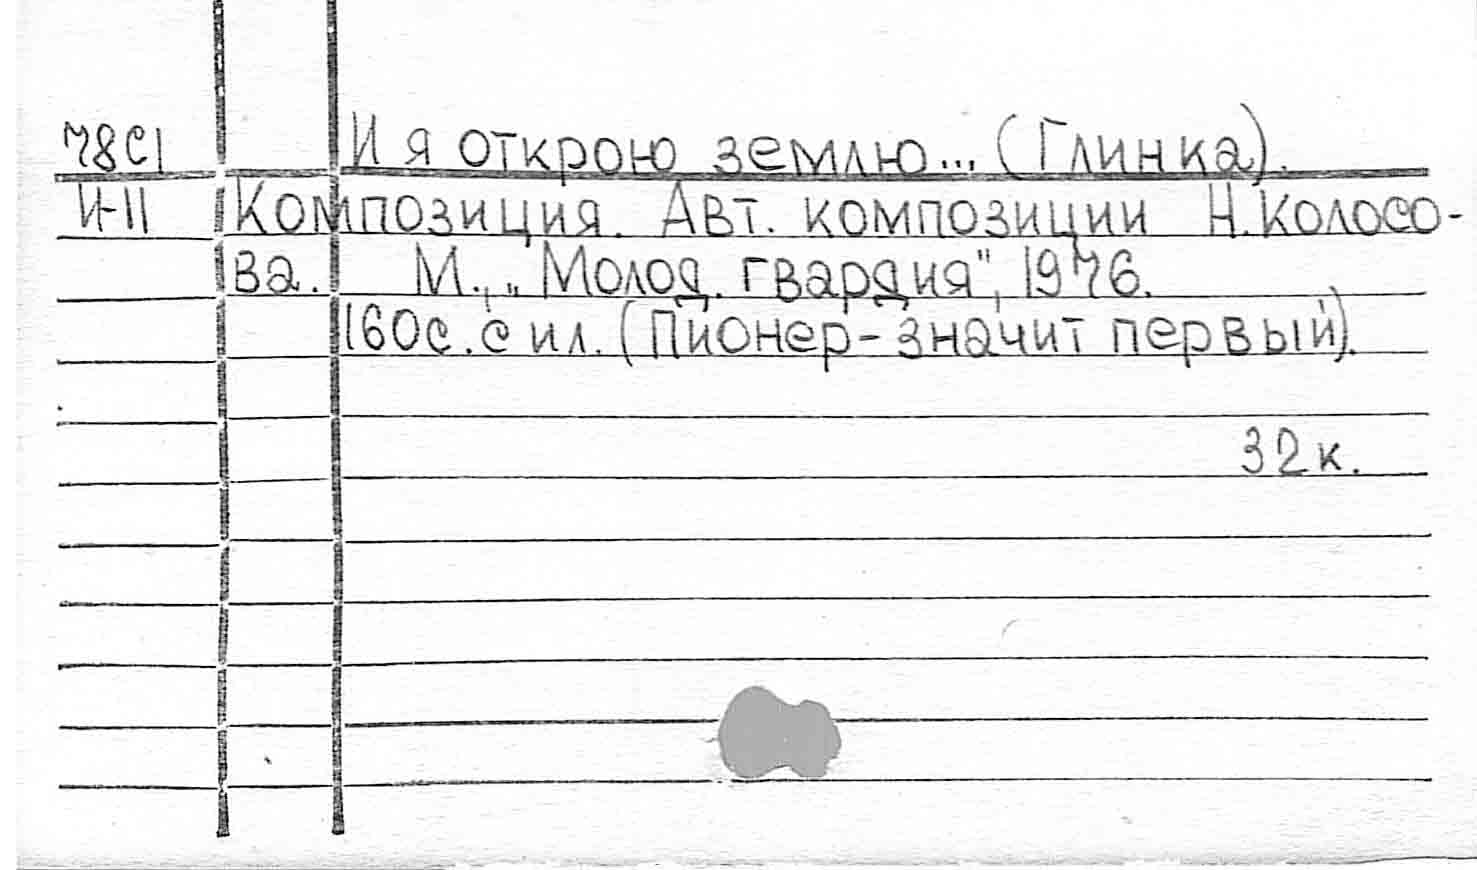 78С1 И я открою землю... (Глинка).
И-11 Композиция. Авт. композиции Н. Колосо-
ва. М., „Молод. гвардия", 1976.
160с. с ил. (Пионер - значит первый).
32 к.